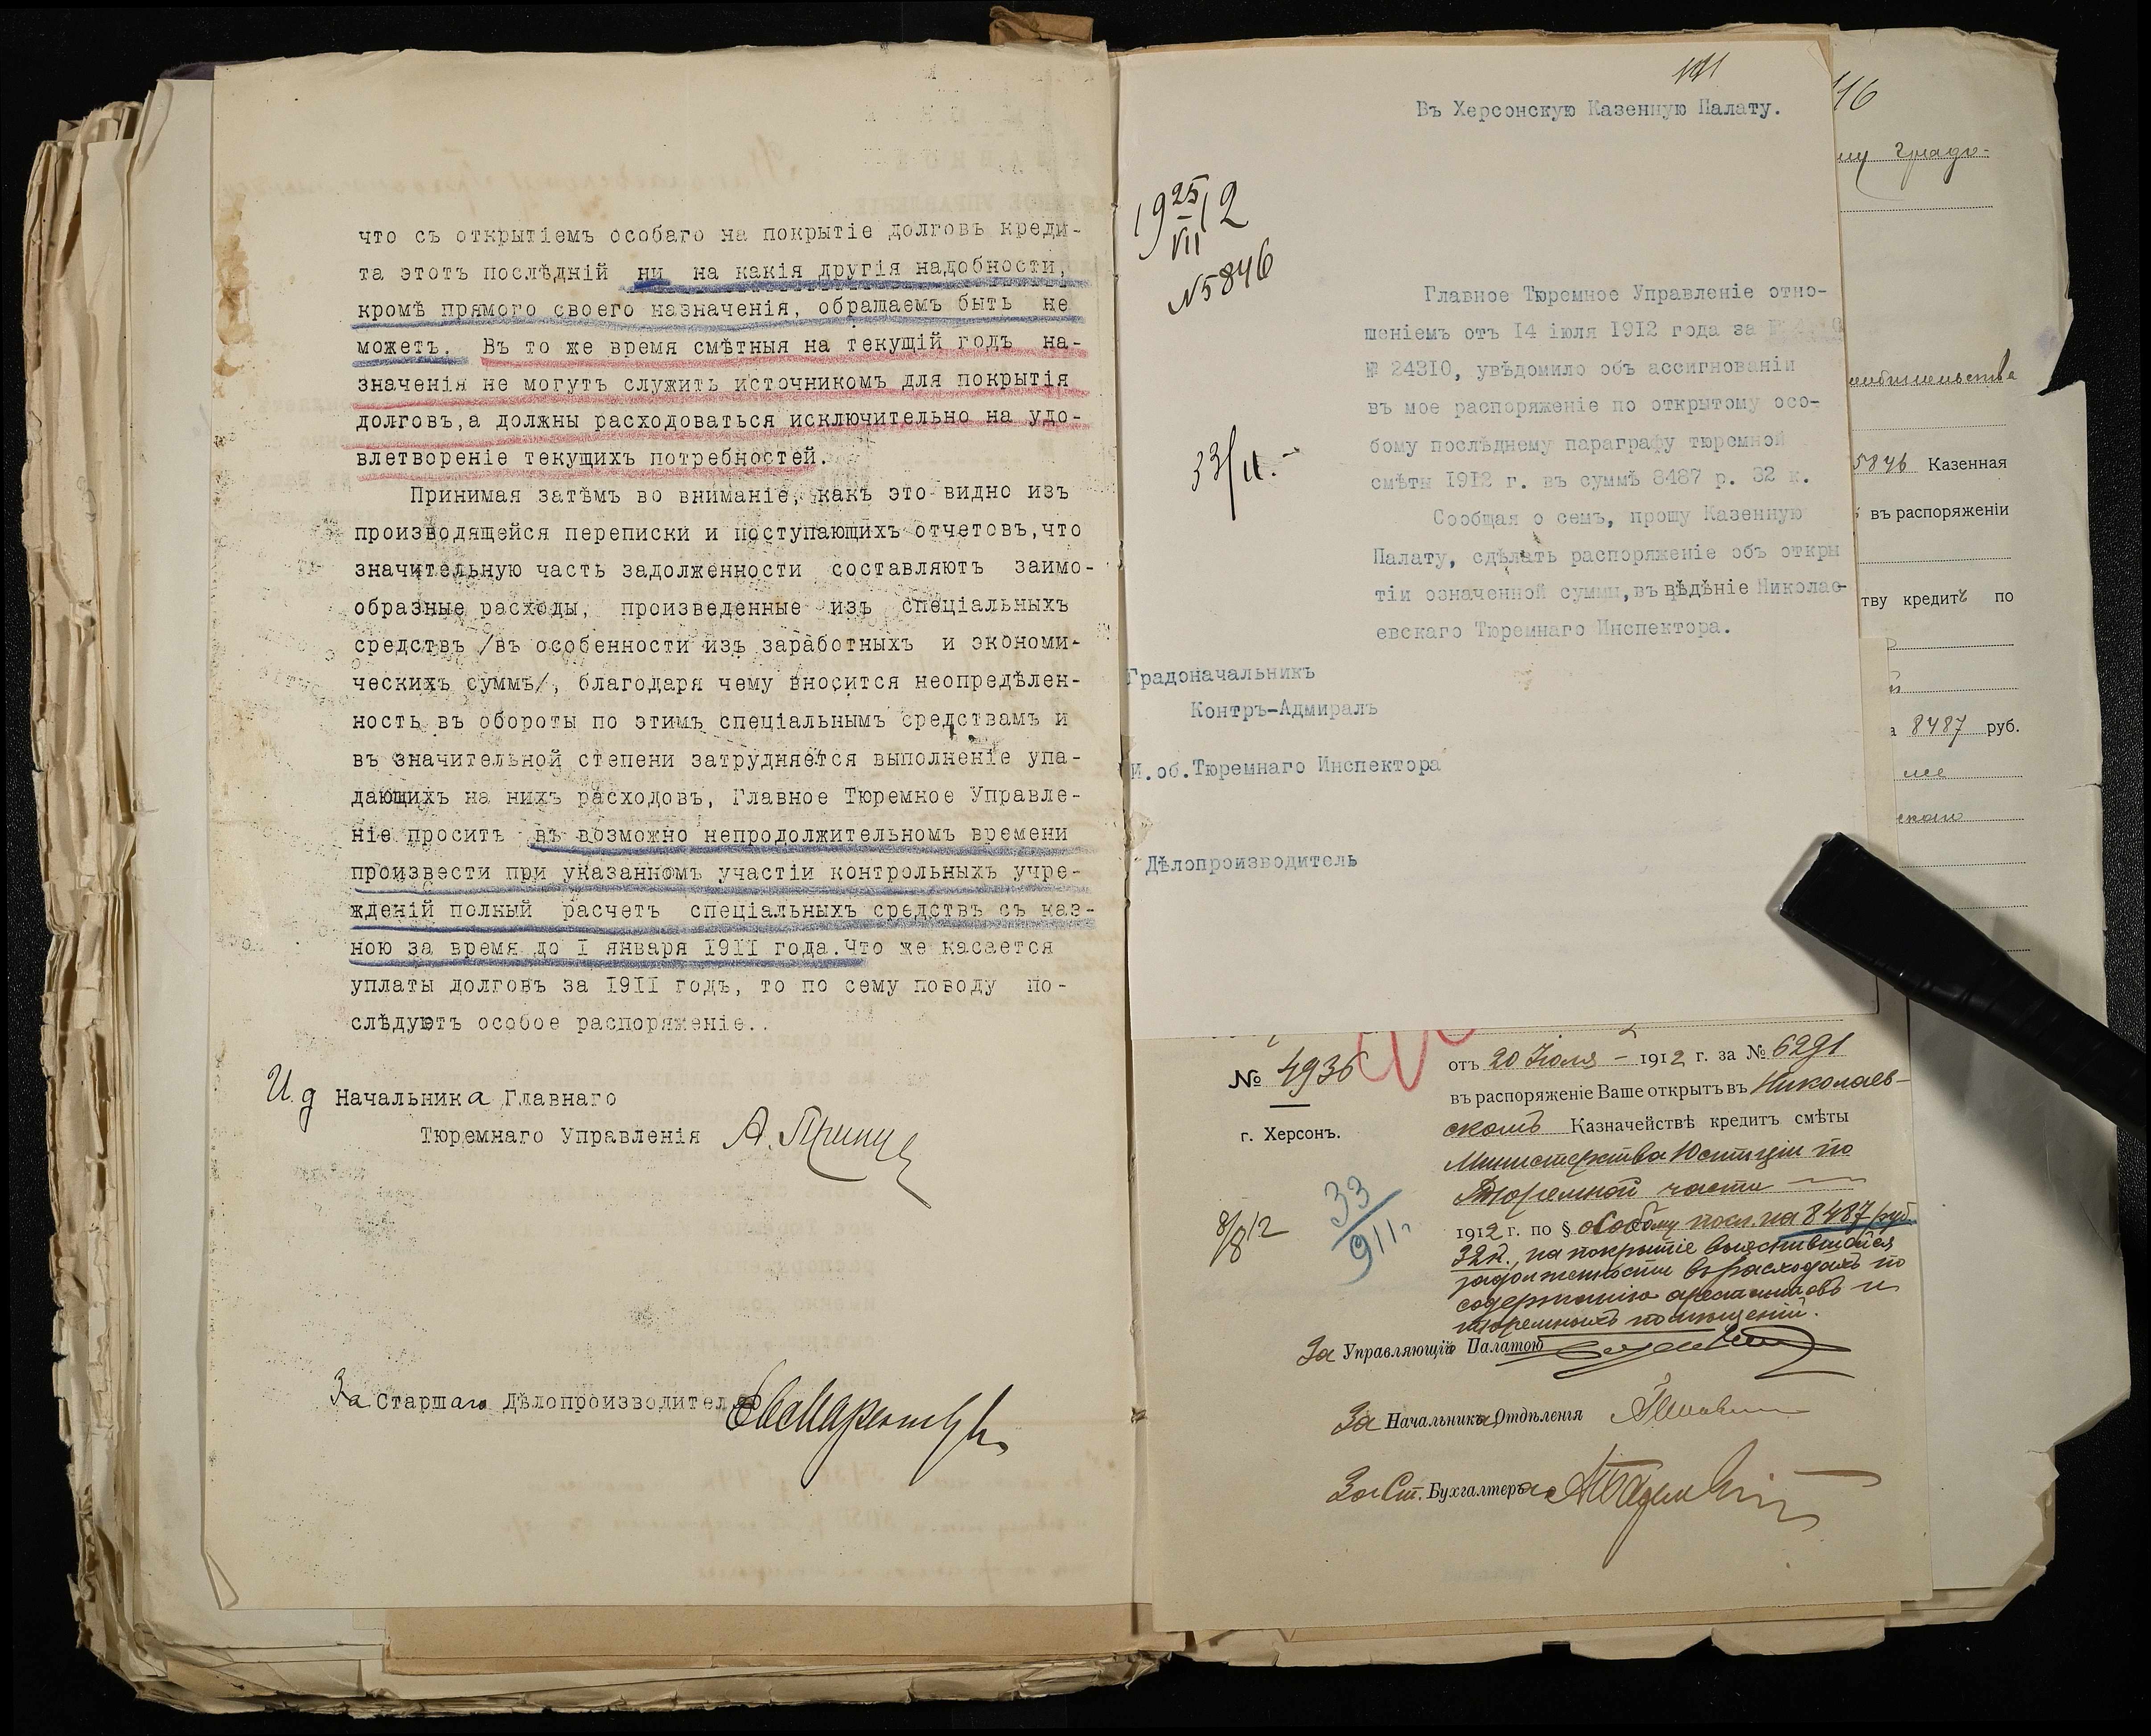 что съ открытіемъ особаго на покрытіе долговъ креди-
та этотъ послѣдній ни на какія другія надобности,
кромѣ прямого своего назначенія, обращаемъ быть не
можетъ. Въ то же время смѣтныя на текущій годъ на-
значенія не могутъ служить источникомъ для покрытія
долговъ,а должны расходоваться исключительно на удо-
влетвореніе текущихъ потребностей.
Принимая затѣмъ во вниманіе, какъ это видно изъ
производящейся переписки и поступающихъ отчетовъ,что
значительную часть задолженности составляютъ заимо-
образные расходы, произведенные изъ спеціальныхъ
средствъ /въ особенности изъ заработныхъ и экономи-
ческихъ суммъ/, благодаря чему вносится неопредѣлен-
ность въ обороты по этимъ спеціальнымъ средствамъ и
въ значительной степени затрудняется выполненіе упа-
дающихъ на нихъ расходовъ, Главное Тюремное Управле-
ніе проситъ въ возможно непродолжительномъ времени
произвести при указанномъ участіи контрольныхъ учре-
жденій полный расчетъ спеціальныхъ средствъ съ каз-
ною за время до I января 1911 года.Что же касается
уплаты долговъ за 1911 годъ, то по сему поводу по-
слѣдуютъ особое распоряженіе..
И.д Начальника Главнаго
Тюремнаго Управленія
За Старшаго Дѣлопроизводителя
141
Въ Херсонскую Казенную Палату.
19 25/VII 12
№5846
33/11.-
Главное Тюремное Управленіе отно-
шеніемъ отъ 14 іюля 1912 года за
№ 24310, увѣдомило объ ассигнованіи
въ мое распоряженіе по открытому осо-
бому послѣднему параграфу тюремной
смѣты 1912 г. въ суммѣ 8487 р. 32 к.
Сообщая о семъ, прошу Казенную
Палату, сдѣлать распоряженіе объ откры
тіи означенной суммы,въ вѣдѣніе Николае-
евскаго Тюремнаго Инспектора.
Градоначальникъ
Контръ-Адмиралъ
И.об.Тюремнаго Инспектора
Дѣлопроизводитель
№ 4936
г. Херсонъ.
8/8 12
33/911г
отъ 20 Іюля - 1912 г. за № 6291
въ распоряженіе Ваше открытъ въ Николаев-
скомъ Казначействѣ кредитъ смѣты
Министерства Юстиціи по
Тюремной части
1912 г. по § особому посл. на 8487 руб.
32 к., на покрытіе выяснившейся
задолженности въ расходахъ по
содержанію арестантовъ и
тюремныхъ помещеній.
За Управляющій Палатою
За Начальника Отдѣленія
За Ст. Бухгалтера
116
градо-
5846 Казенная
въ распоряженіи
тву кредитъ по
а 8487 руб.